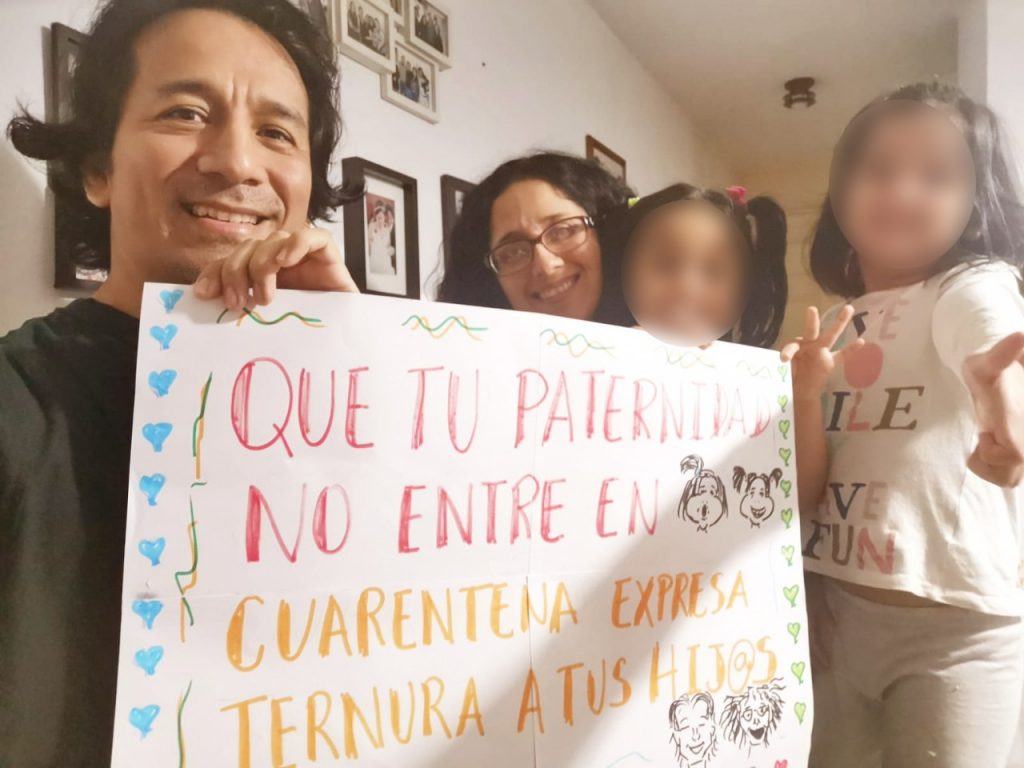 QUE TU PATERNIDAD
NO ENTRE EN
CUARENTENA EXPRESA
TERNURA A TUS HIJ@S
ILE
AVE
FUN